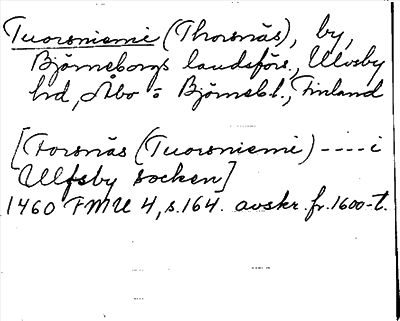 Tuorsniemi (Thorsnäs), by,
Björneborgs landsförs., Ulvsby
hd, Åbo o Björnebl., Finland
[Torsnäs (Tuorsniemi) ---- i
Ulfsby socken]
1460 FMU 4, s. 164. avskr. fr. 1600-t.